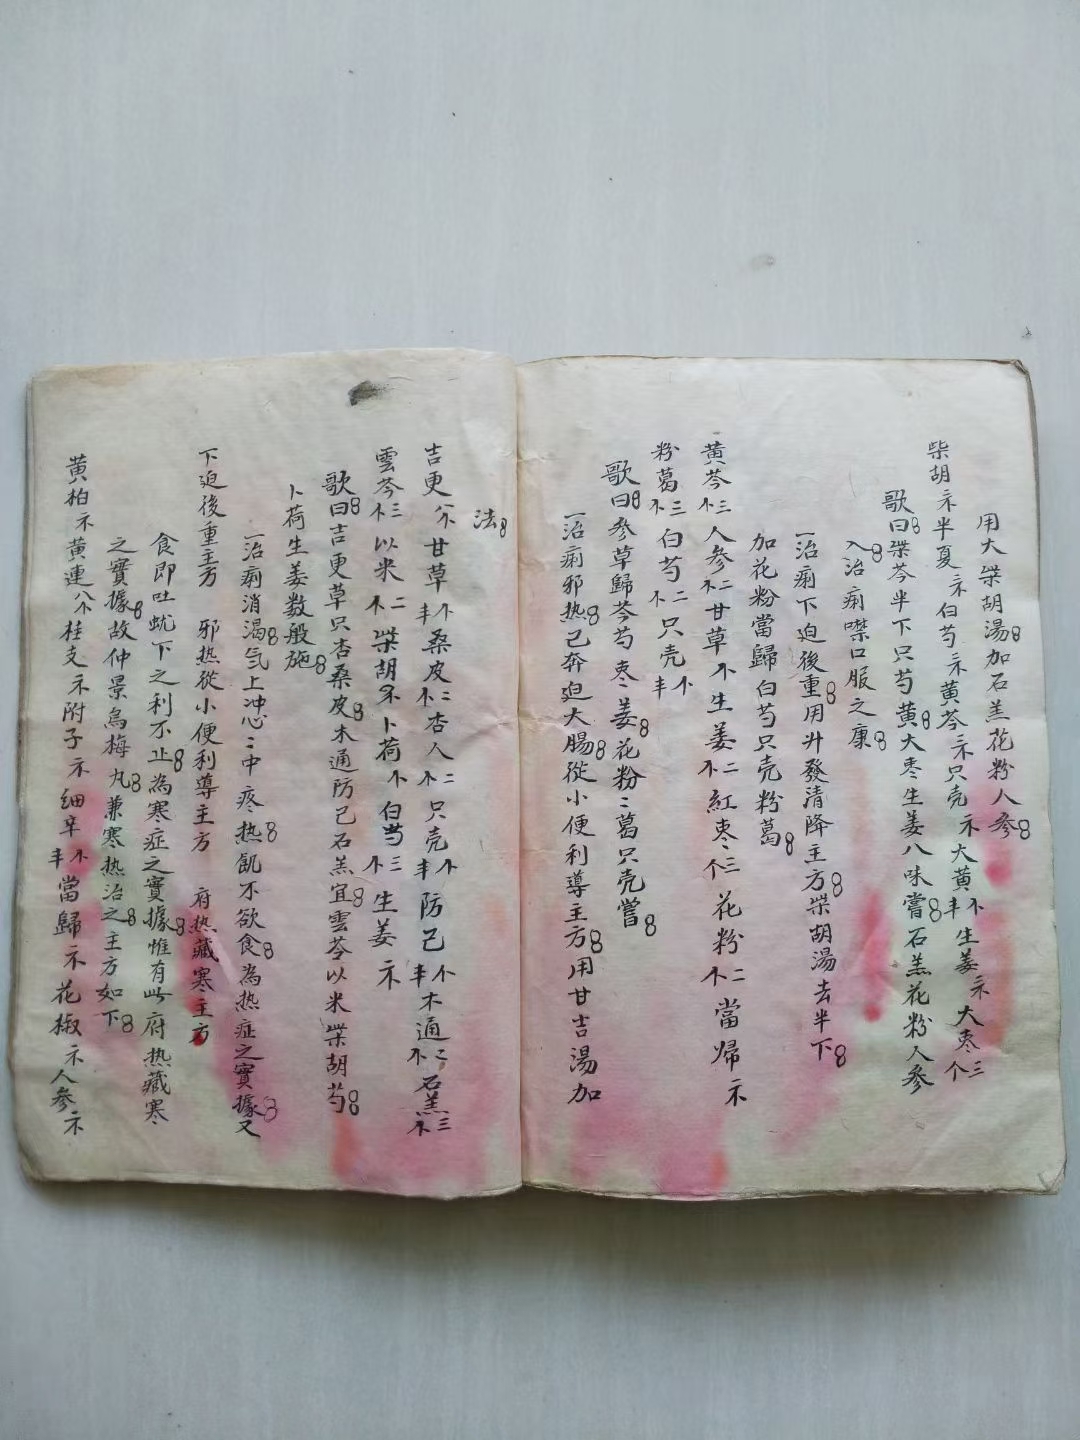 用大柴胡湯加石羔花粉人參
柴胡 半夏 白芍 黄芩 只壳 大黄 生姜 大枣三个
歌曰柴芩半下只芍黄大枣生姜八味嘗石羔花粉人參
入治痢噤口服之康
一治痢下迫後重用升發清降主方柴胡湯去半下
加花粉當歸白芍只壳粉葛
黄芩三 人參二 甘草 生姜二 紅枣三个 花粉二 當帰
粉葛三 白芍二 只壳
歌曰參草歸芩芍枣姜花粉〻葛只壳嘗
一治痢邪热已奔迫大腸從小便利導主方用甘吉湯加
法
吉更八 甘草 桑皮二 杏人二 只壳 防己 木通二 石羔三
雲苓三 以米二 柴胡 卜荷 白芍三 生姜
歌曰吉更草只杏桑皮木通防己石羔宜雲苓以米柴胡芍
卜荷生姜数般施
一治痢消渴气上冲心〻中疼热飢不欲食為热症之實據又
下迫後重主方 邪热從小便利導主方 府热藏寒主方
食即吐蚘下之利不止為寒症之實據惟有此府热藏寒
之實據故仲景烏梅丸兼寒热治之主方如下
黄柏 黄連八 桂支 附子 细辛 當歸 花椒 人參